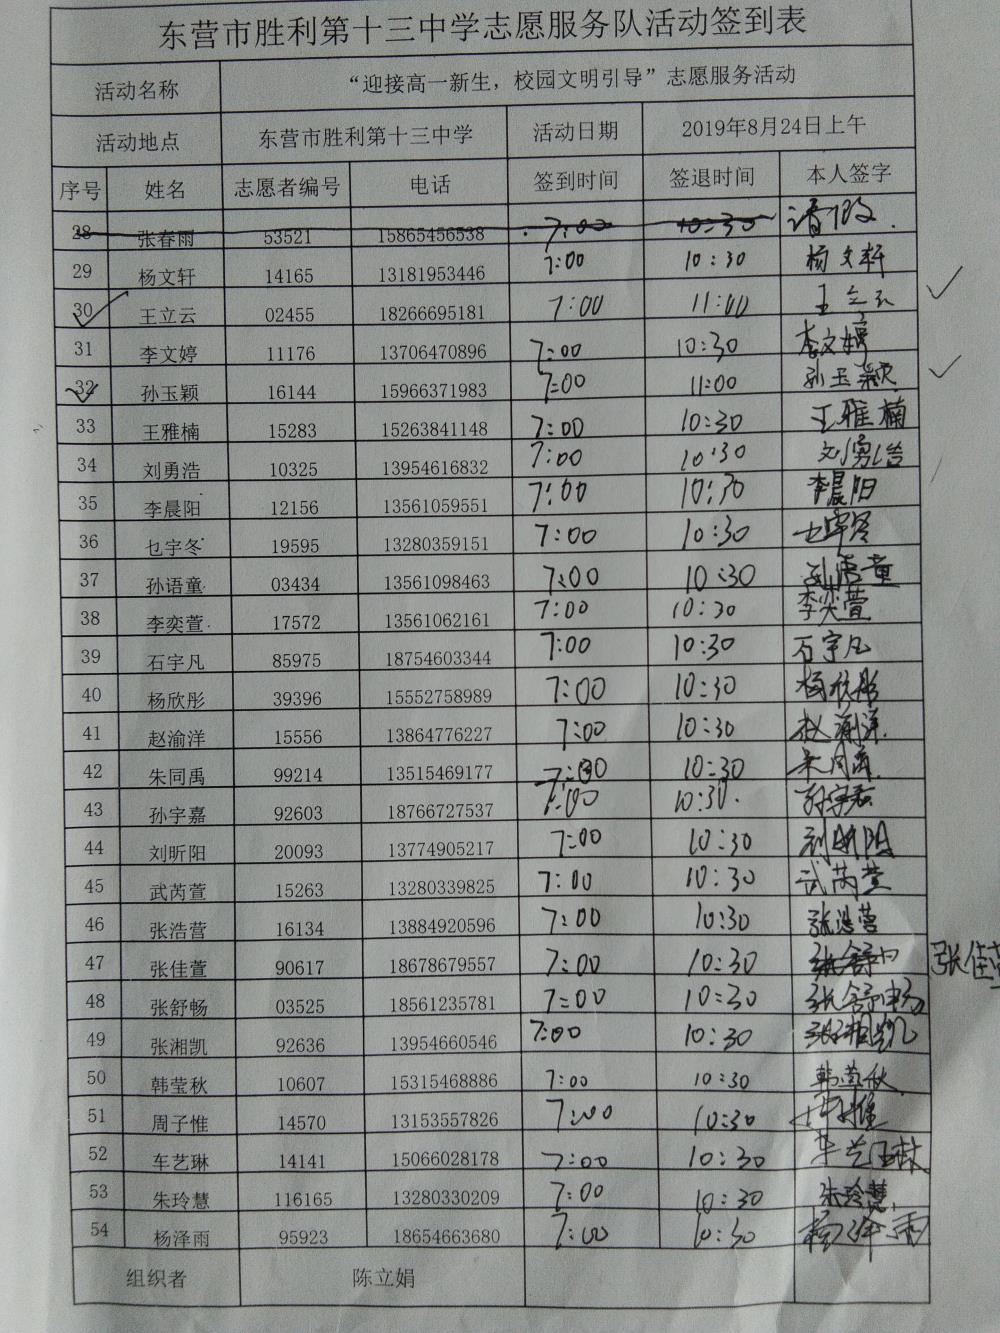 东营市胜利第十三中学志愿服务队活动签到表
活动名称 “迎接高一新生，校园文明引导”志愿服务活动
活动地点 东营市胜利第十三中学 活动日期 2019年8月24日上午
序号 姓名 志愿者编号 电话 签到时间 签退时间 本人签字
28 张春雨 53521 15865456538 7:00 10:30 请假
29 杨文轩 14165 13181953446 7:00 10:30 杨文轩
30 王立云 02455 18266695181 7:00 11:00 王立云
31 李文婷 11176 13706470896 7:00 10:30 李文婷
32 孙玉颖 16144 15966371983 7:00 11:00 孙玉颖
33 王雅楠 15283 15263841148 7:00 10:30 王雅楠
34 刘勇浩 10325 13954616832 7:00 10:30 刘勇浩
35 李晨阳 12156 13561059551 7:00 10:30 李晨阳
36 乜宇冬 19595 13280359151 7:00 10:30 乜宇冬
37 孙语童 03434 13561098463 7:00 10:30 孙语童
38 李奕萱 17572 13561062161 7:00 10:30 李奕萱
39 石宇凡 85975 18754603344 7:00 10:30 石宇凡
40 杨欣彤 39396 15552758989 7:00 10:30 杨欣彤
41 赵渝洋 15556 13864776227 7:00 10:30 赵渝洋
42 朱同禹 99214 13515469177 7:00 10:30 朱同禹
43 孙宇嘉 92603 18766727537 7:00 10:30 孙宇嘉
44 刘昕阳 20093 13774905217 7:00 10:30 刘昕阳
45 武芮萱 15263 13280339825 7:00 10:30 武芮萱
46 张浩营 16134 13884920596 7:00 10:30 张浩营
47 张佳萱 90617 18678679557 7:00 10:30 张佳萱
48 张舒畅 03525 18561235781 7:00 10:30 张舒畅
49 张湘凯 92636 13954660546 7:00 10:30 张湘凯
50 韩莹秋 10607 15315468886 7:00 10:30 韩莹秋
51 周子惟 14570 13153557826 7:00 10:30
52 车艺琳 14141 15066028178 7:00 10:30 车艺琳
53 朱玲慧 116165 13280330209 7:00 10:30 朱玲慧
54 杨泽雨 95923 18654663680 7:00 10:30 杨泽雨
组织者 陈立娟